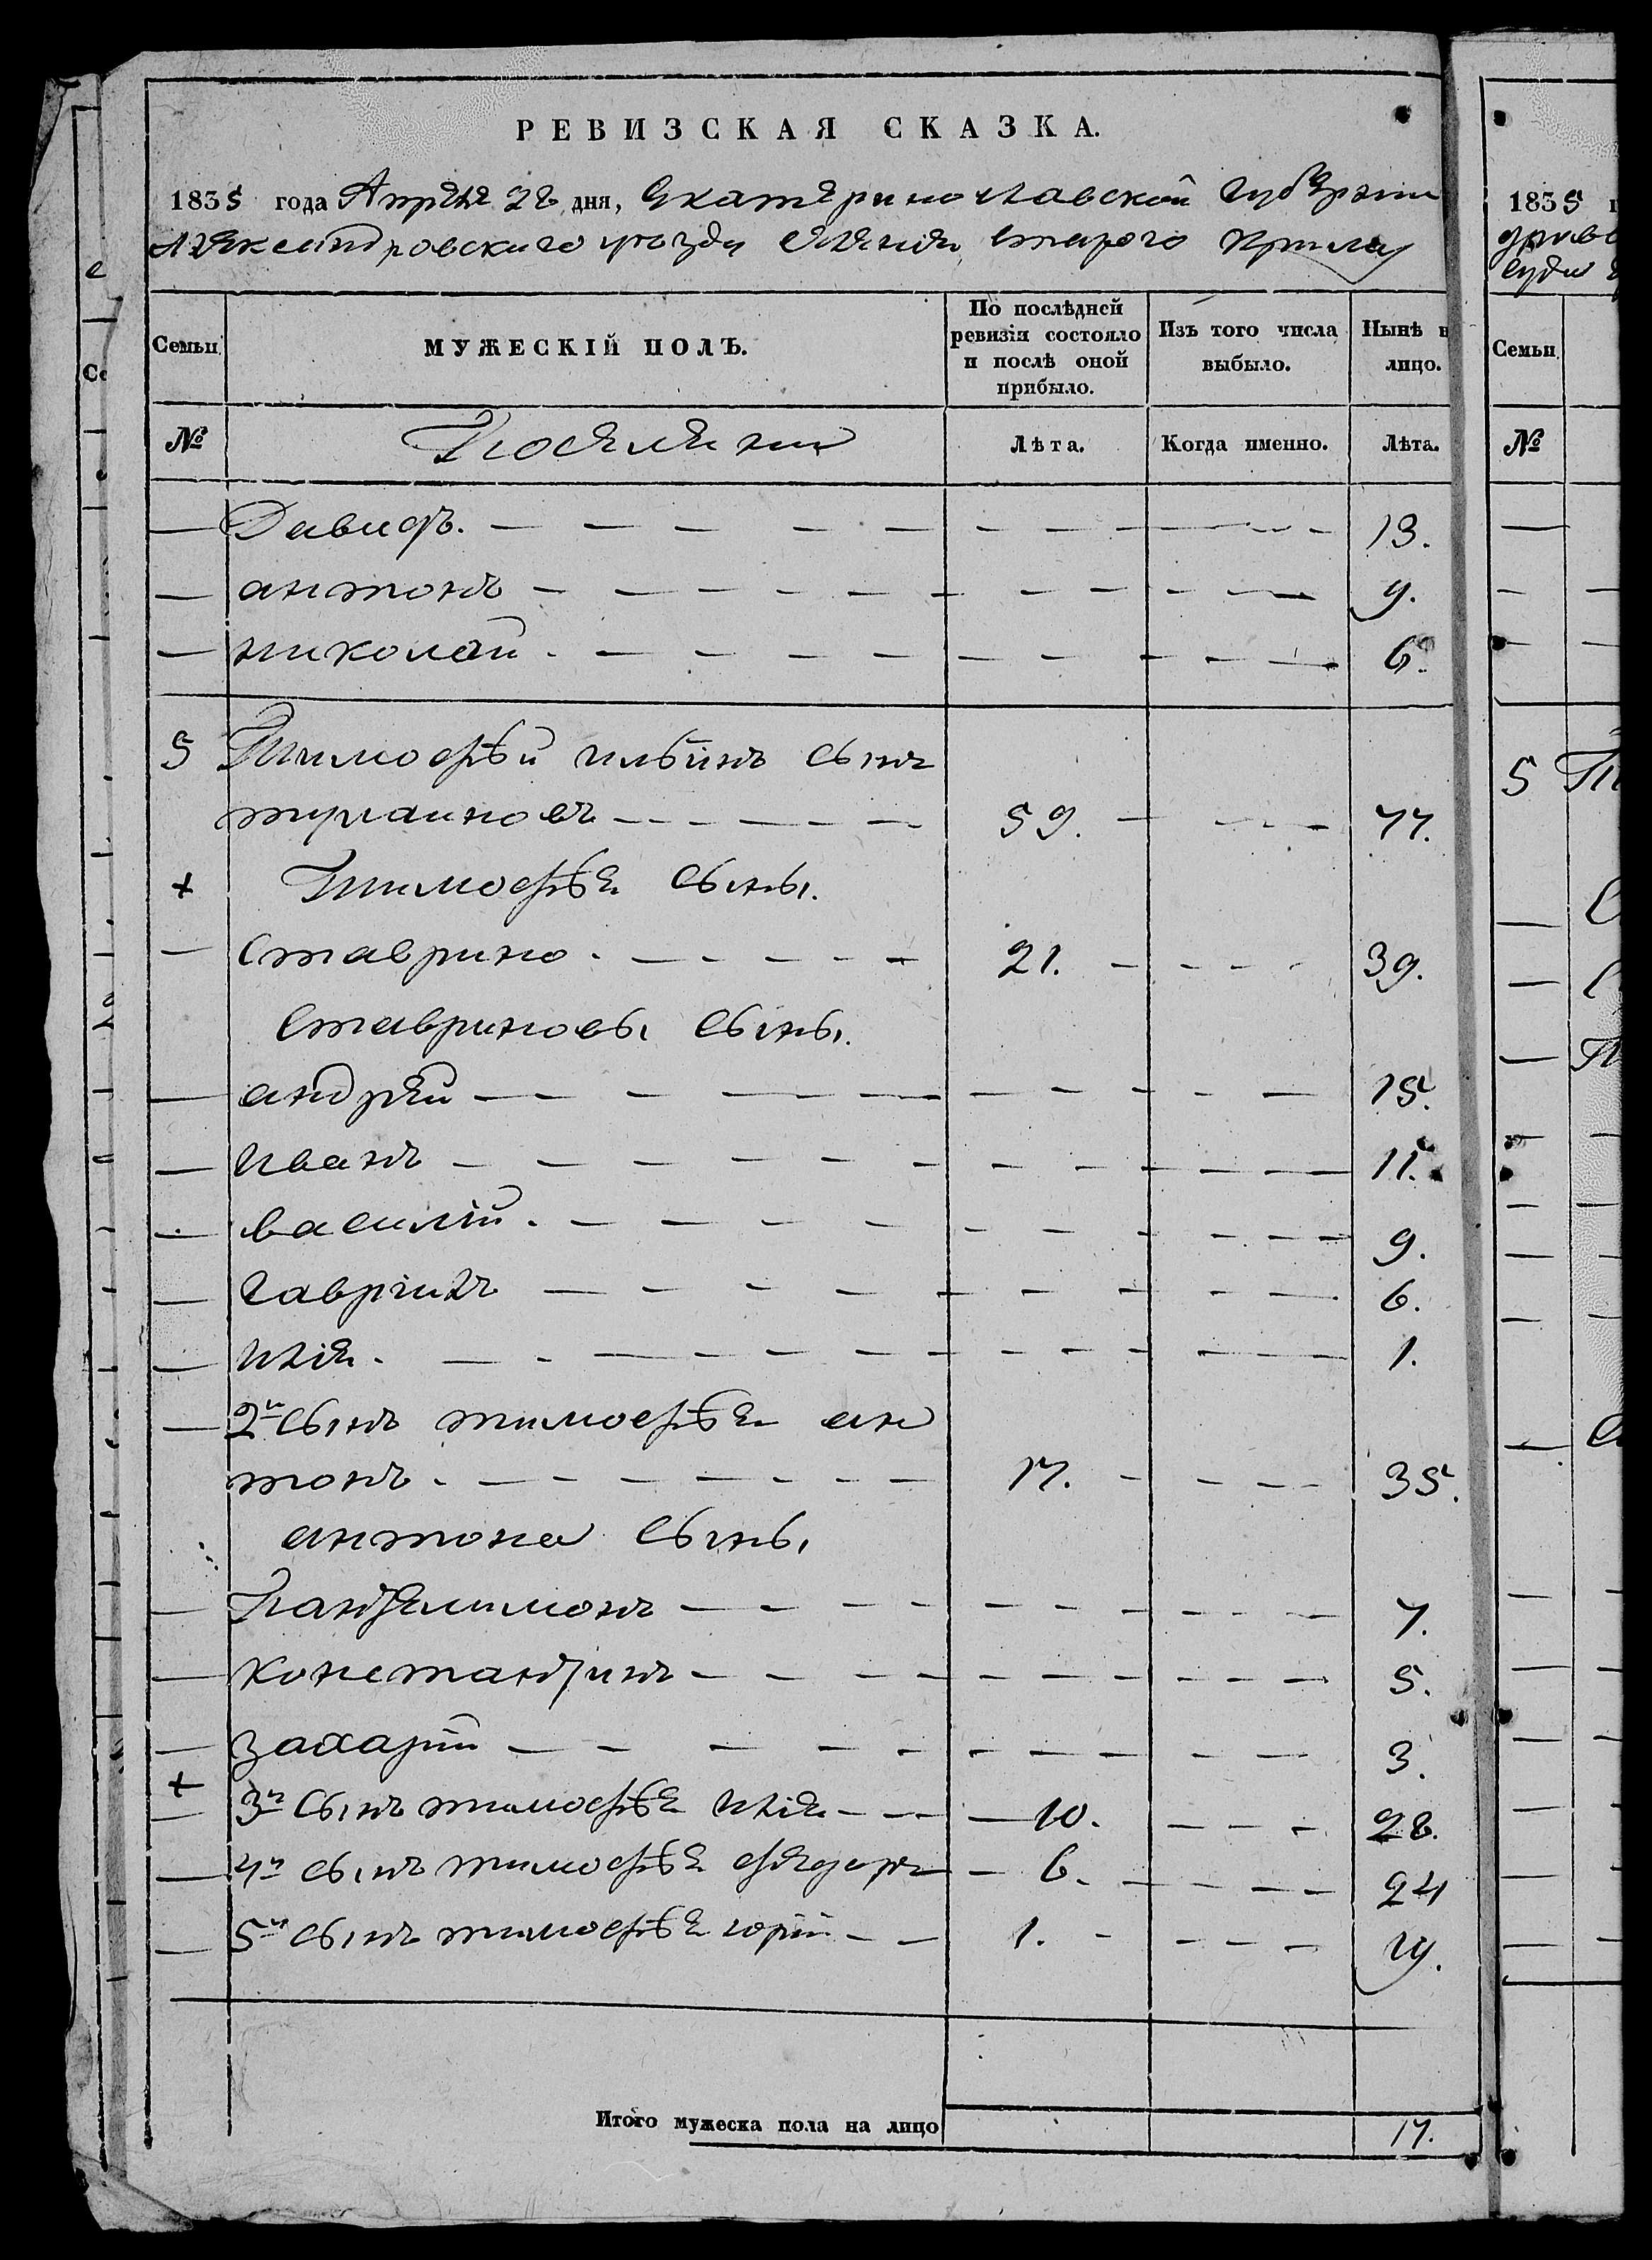 РЕВИЗСКАЯ СКАЗКА.
1835 года Апреля 28 дня, Екатеринославской губернии
Александровскаго уезда селения Старого Крыма
Семьи. МУЖЕСКІЙ ПОЛЪ. По послѣдней ревизіи состояло и послѣ оной прибыло. Изъ того числа выбыло. Нынѣ н лицо.
№ Поселяни Лѣта. Когда именно. Лѣта.
— Давидъ. — — — 13.
— антонъ — — — 9.
— николай. — — — 6.
5 Тимофѣй ильинъ сынъ
— — 59. — — 77.
+ Тимофѣе сыны.
— Ставрино. — — 21. — — 39.
Ставриновы сыны.
— андрей — — — 15.
— иванъ — — — 11.
— василій. — — — 9.
— гавріилъ — — — 6.
— иліе. — — — 1.
— 2й сынъ тимофѣе ан
тонъ. — — 17. — — 35.
антона сыны
— Пантелимонъ — — — 7.
— константинъ — — — 5.
— захарій — — — 3.
+
— 3й сынъ тимофѣе иліе — — 10. — — 28.
— 4й сынъ тимофѣе федоръ — 6. — — 24
— 5й сынъ тимофѣе юрій — — 1. — — 19.
Итого мужеска пола на лицо 17.
1835
Семьи.
№
5